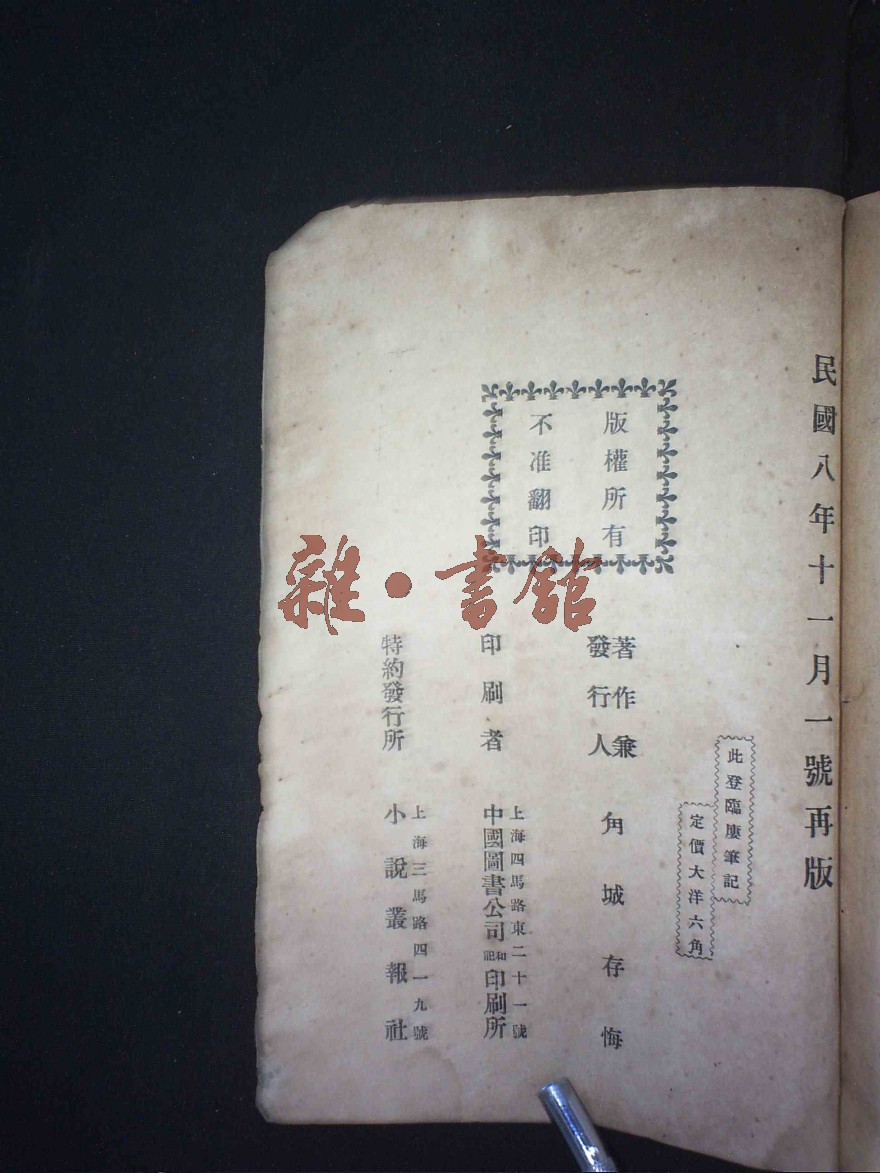 民國八年十一月一號再版
此登臨廔筆記
定價大洋六角
版權所有
不准翻印
著作兼
發行人
角城存悔
印刷者
上海四馬路東二十一號
中國圖書公司和記印刷所
特約發行所
上海三馬路四一九號
小說叢報社
雜·書館